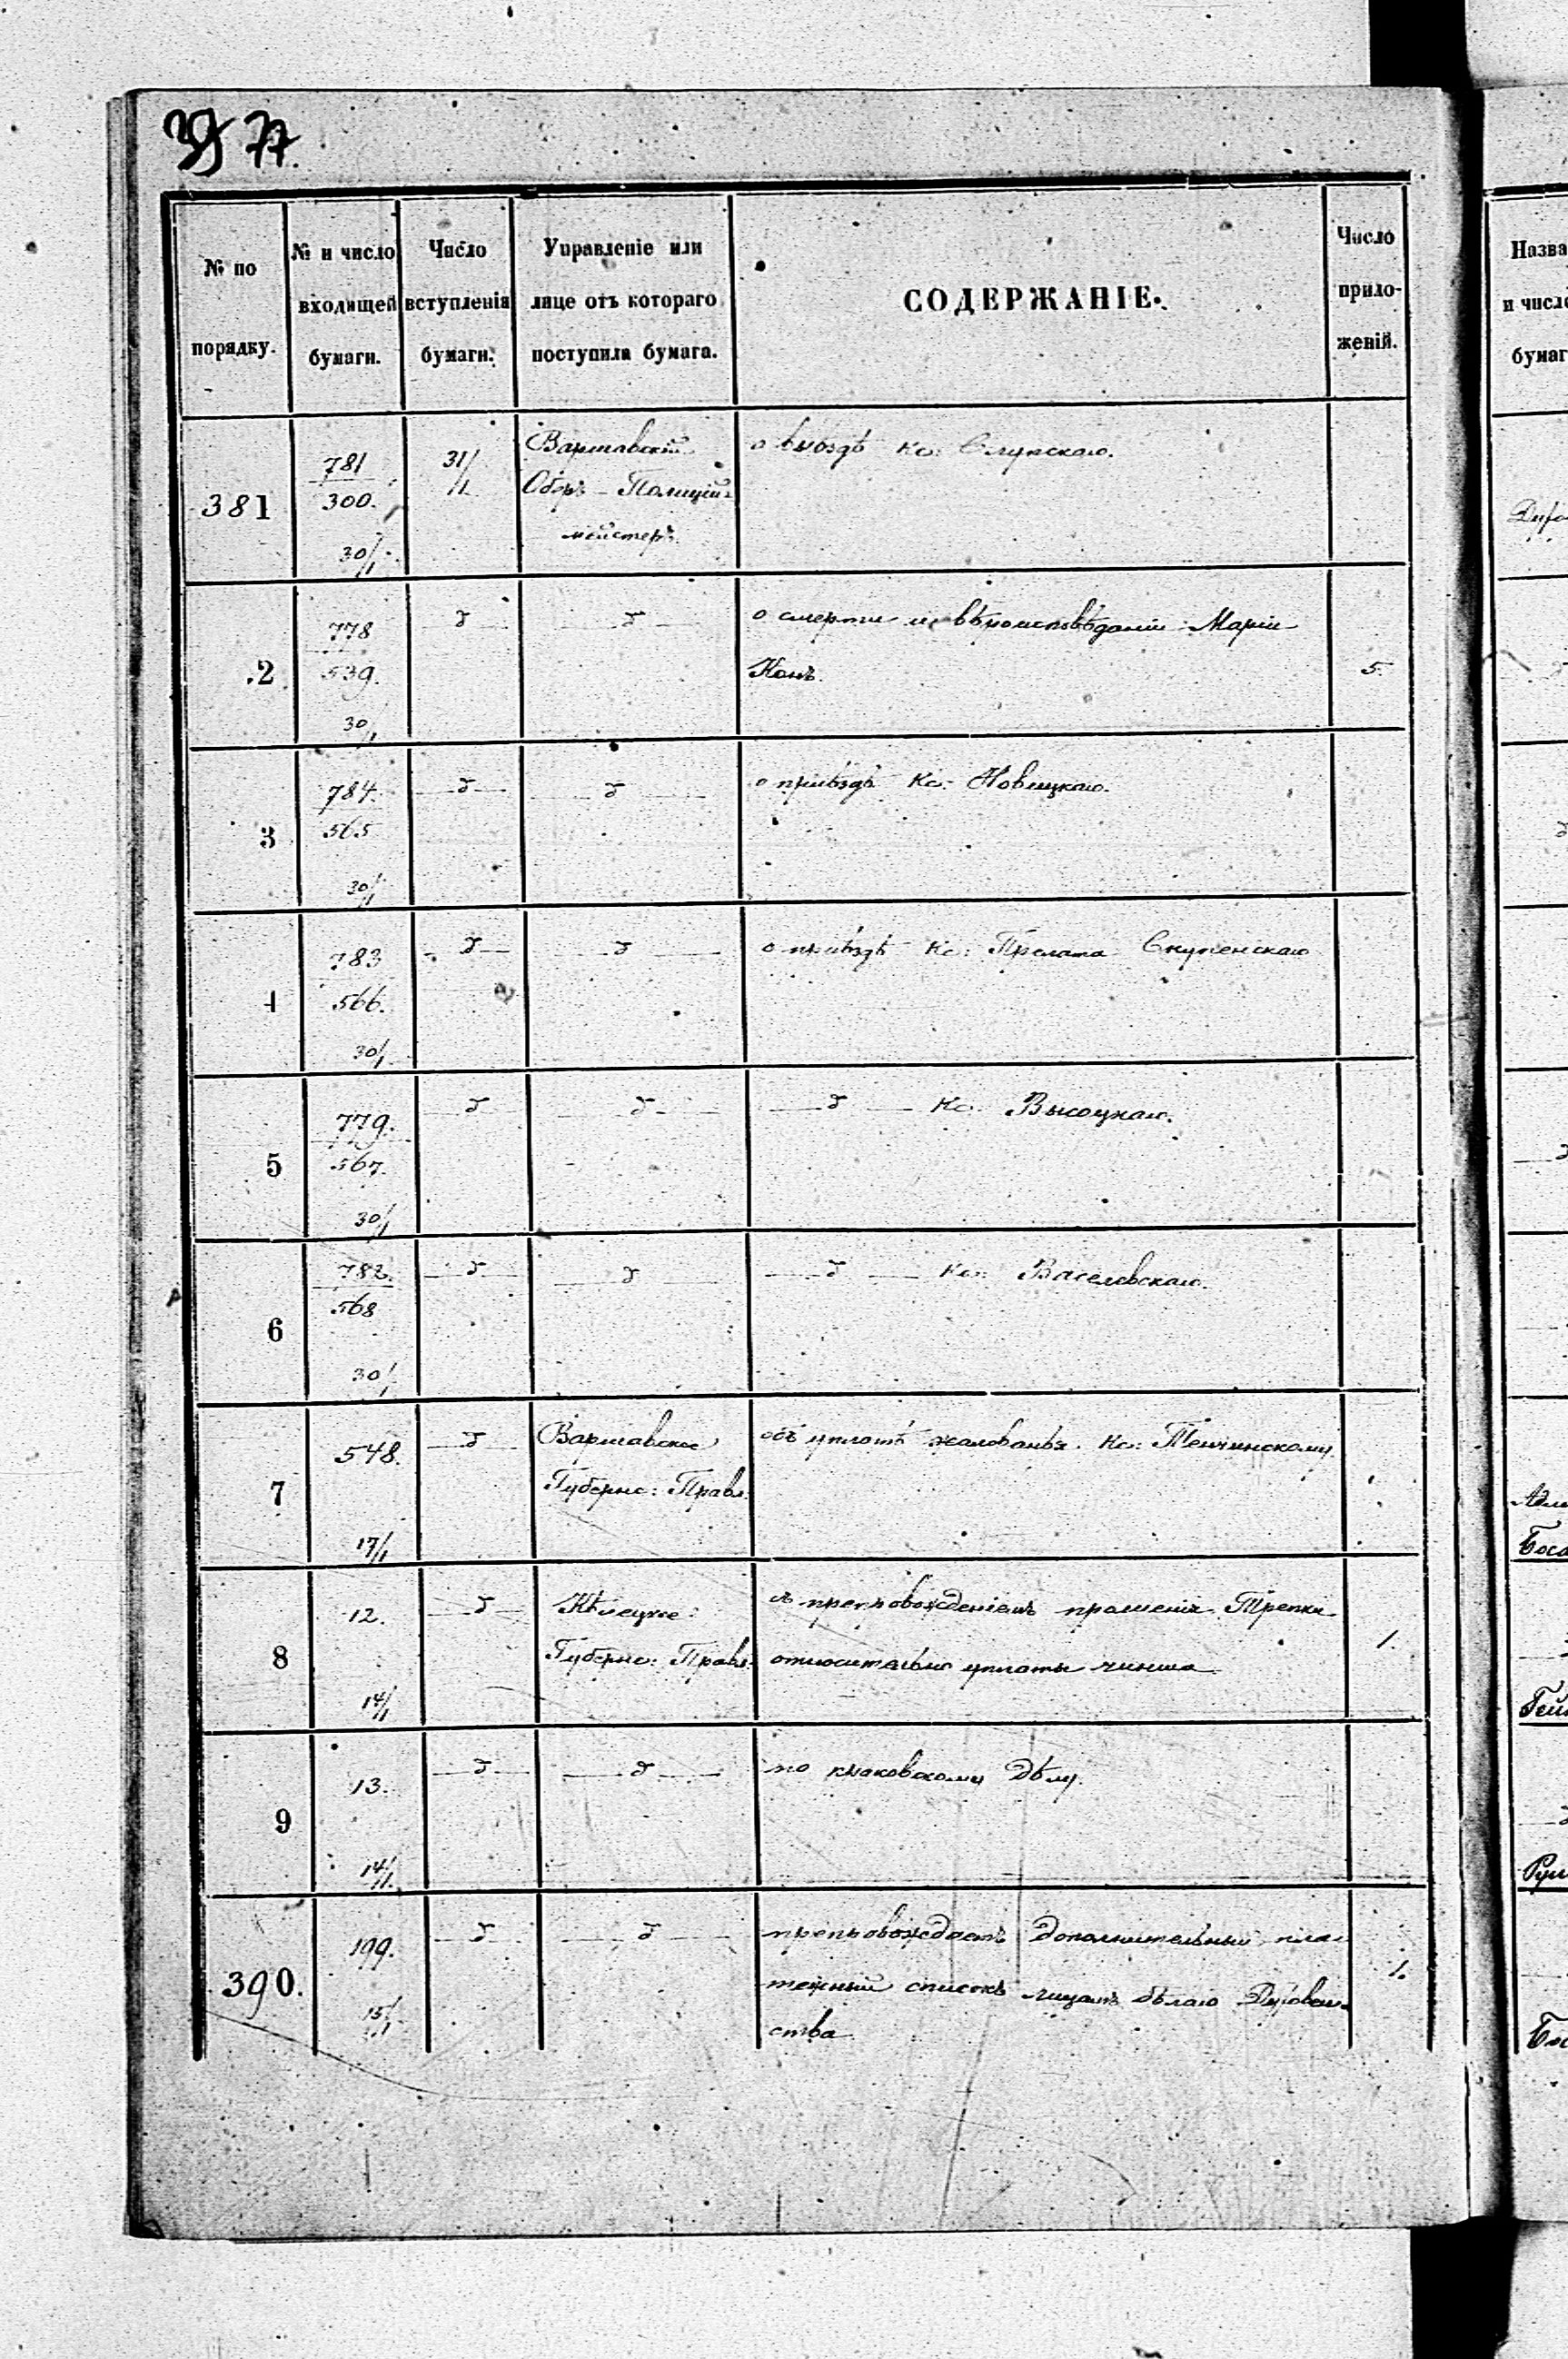 39 77.
№ по порядку.
№ и число входящей бумаги.
Число вступленія бумаги.
Управленіе или лице отъ котораго поступила бумага.
СОДЕРЖАНІЕ.
Число приложеній.
381
781
300.
30/1
31/1
Варшавскій
Оберъ-Полиціймейстеръ
о выѣздѣ Кс: Слупскаго.
2
778
539.
30/1
д
д
о смерти и вѣроисповѣданіи Маріи
Конъ.
5.
3
784.
565
30/1
д
д
о пріѣздѣ Кс: Новицкаго.
4
783
566.
30/1
д
д
о пріѣздѣ Кс: Прелата
5
779.
567.
30/1
д
д
д Кс: Высоцкаго.
6
782.
568
30/1
д
д
д Кс:
7
548.
17/1
д
Варшавское
Губернс: Правл.
объ уплатѣ жалованья Кс:
8
12.
14/1
д
Кѣлецкое
Губернс: Правл.
съ препровожденіемъ прошенія Трепки
относительно уплаты чинша
1.
9
13.
14/1
д
д
по дѣлу.
390.
199.
15/1
д
д
препровождаетъ дополнительный пла-
тежный списокъ лицамъ бѣлаго Духовен-
ства
1.
Назва
и число
бумаг